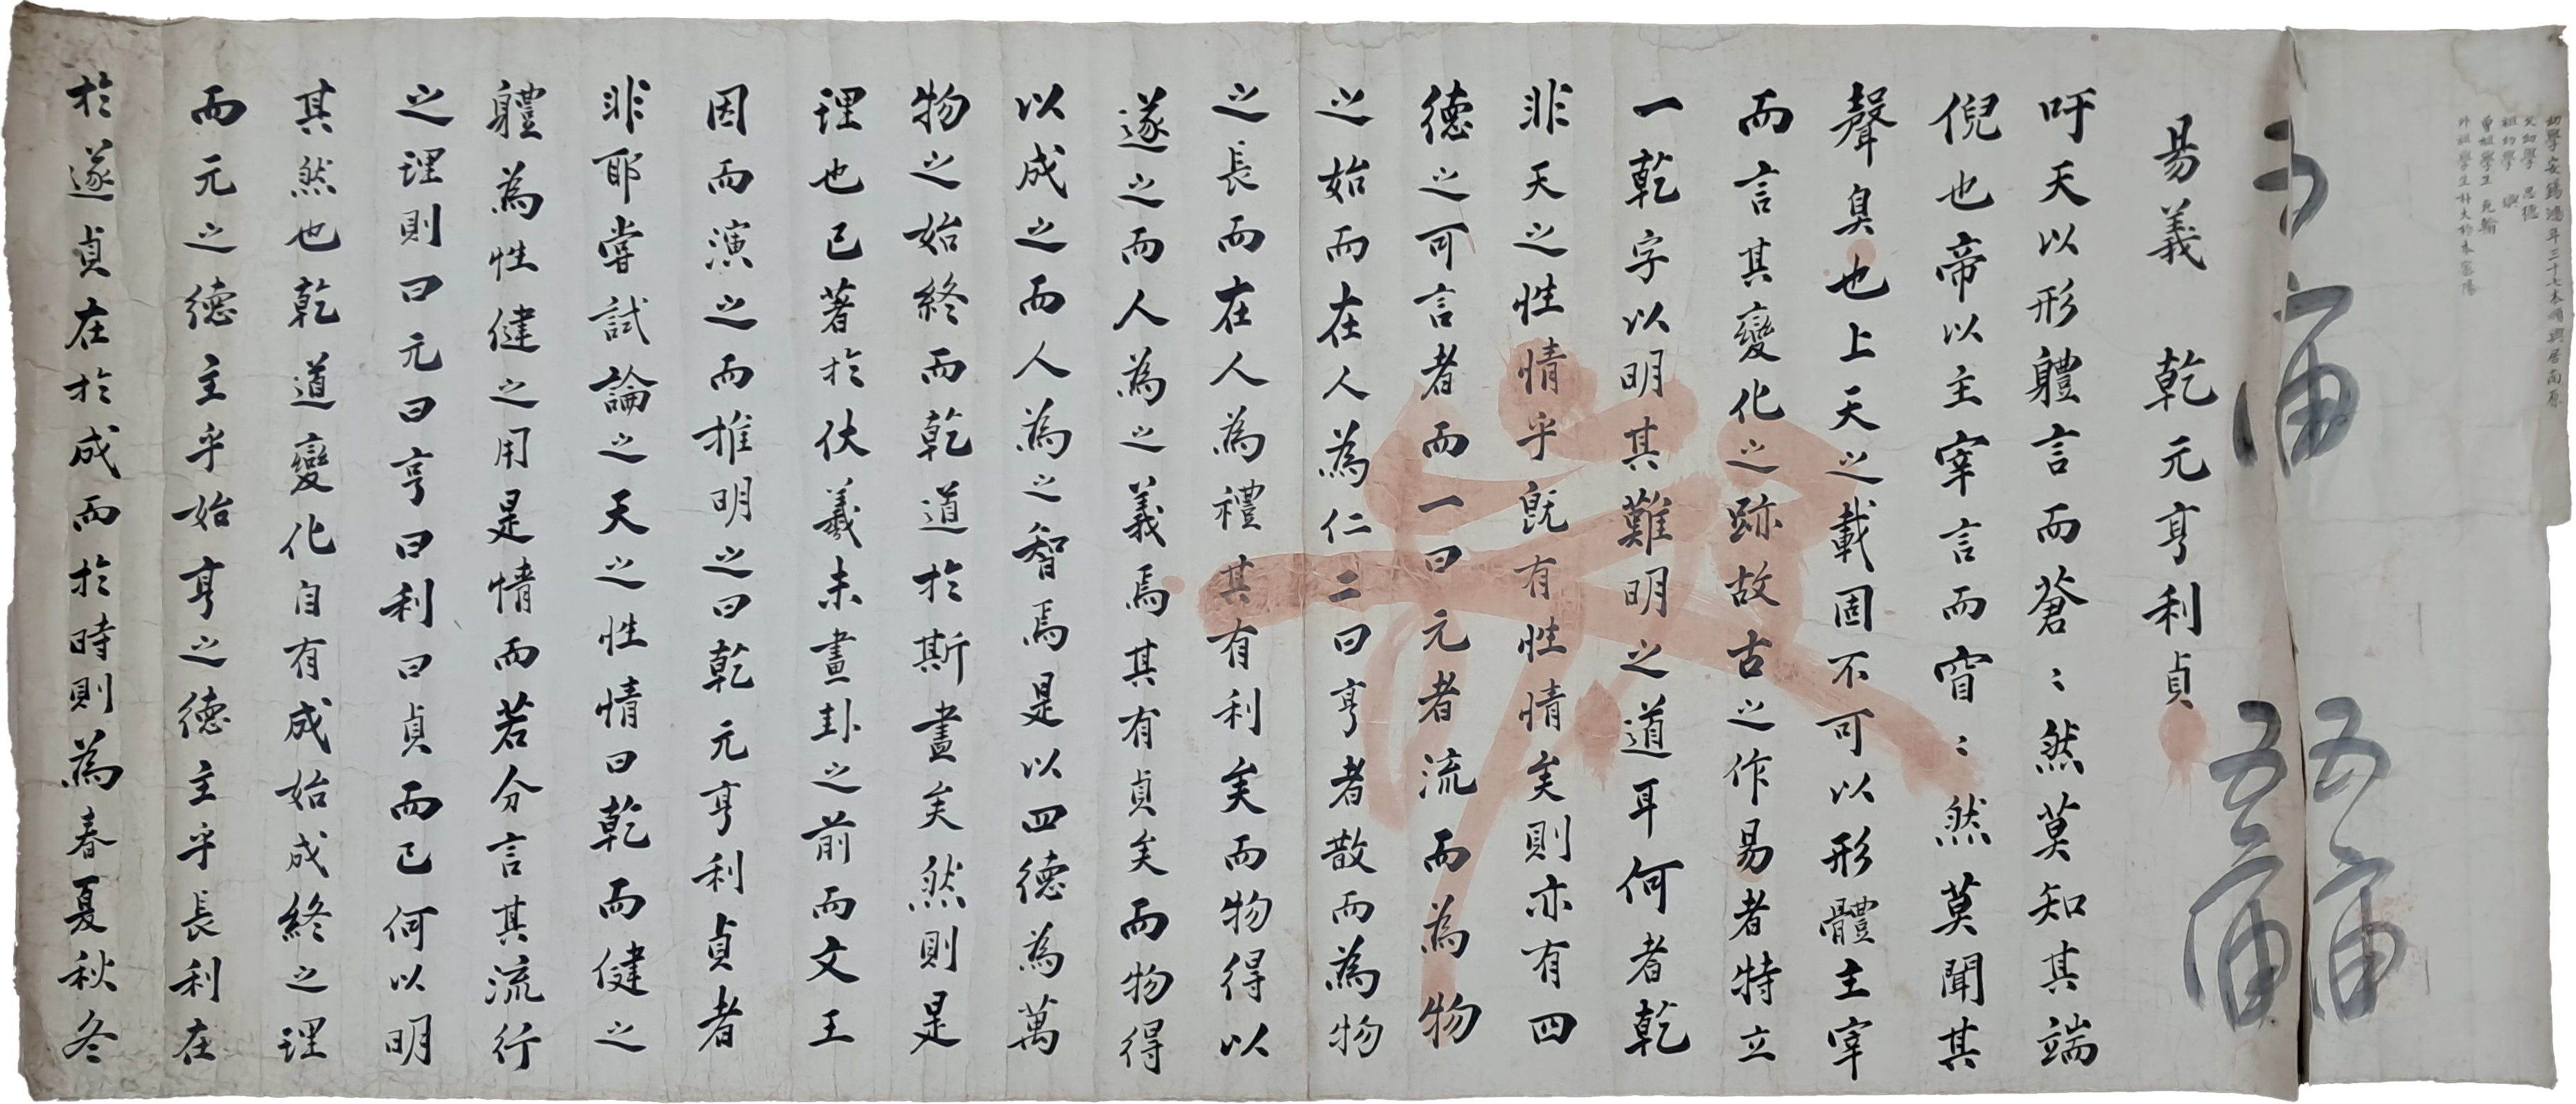 幼學安錫鴻年三十七本順興居南原
父幼學 思德
祖幼學
曾祖學生 克翰
外祖學生朴大 本密陽
五
五
易義 乾元亨利貞
吁天以形軆言而蒼〻然莫知其端
倪也帝以主宰言而窅〻然莫聞其
聲臭也上天之載固不可以形體主宰
而言其變化之跡故古之作易者特立
一乾字以明其難明之道耳何者乾
非天之性情乎旣有性情矣則亦有四
德之可言者而一曰元者流而為物
之始而在人為仁二曰亨者散而為物
之長而在人為禮其有利矣而物得以
遂之而人為之義焉其有貞矣而物得
以成之而人為之智焉是以四德為萬
物之始終而乾道於斯盡矣然則是
理也已著於伏羲未畫卦之前而文王
因而演之而推明之曰乾元亨利貞者
非耶嘗試論之天之性情曰乾而健之
軆為性健之用是情而若分言其流行
之理則曰元曰亨曰利曰貞而已何以明
其然也乾道變化自有成始成終之理
而元之德主乎始亨之德主乎長利在
於遂貞在於成而於時則為春夏秋冬